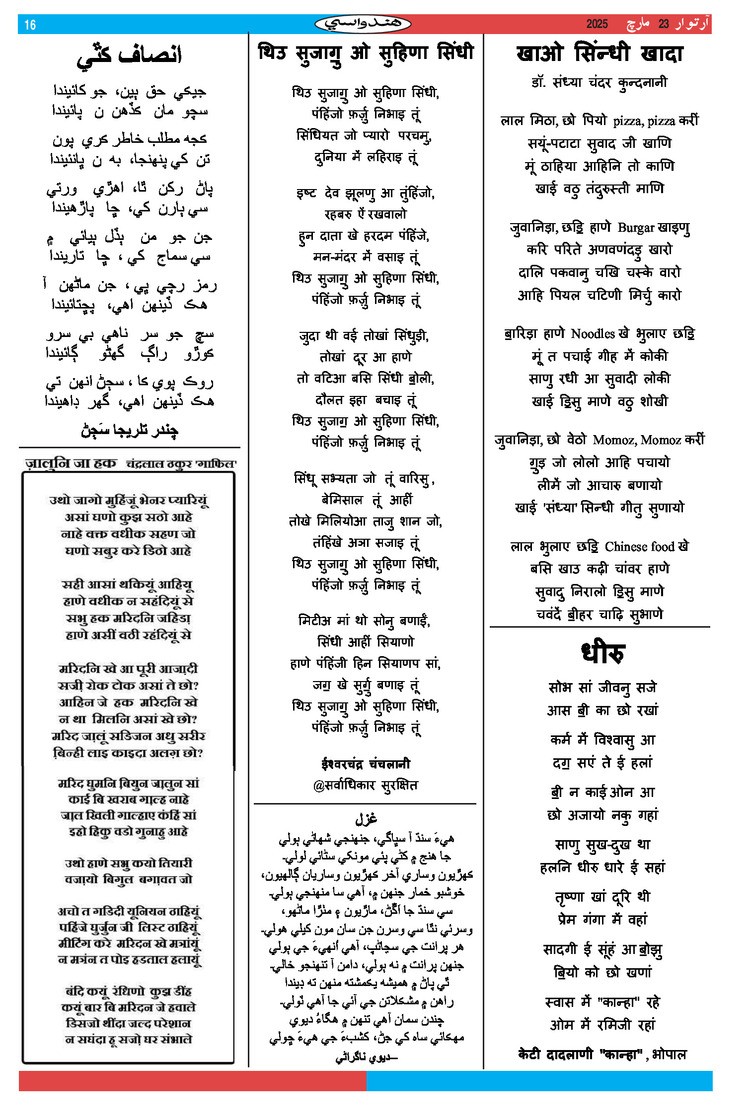 16
هندواسي
آرتوار 23 مارچ 2025
انصاف ڪٿي
جيڪي حق ٻين، جو کائيندا
سچو مان ڪڏهن ن پائيندا
ڪجه مطلب خاطر ڪري پون
تن کي پنهنجا، به ن ڀائنيندا
پاڻ رکن ٿا، اهڙي ورتي
سي ٻارن کي، ڇا پاڙهيندا
جن جو من ٻڏل بيائي ۾
سي سماج کي، ڇا تاريندا
رمز رچي پي، جن ماڻهن آ
هڪ ڏينهن اهي، پڇتائيندا
سچ جو سر ناهي بي سرو
ڪوڙو راڳ گھڻو ڳائيندا
روڪ پوي ڪا، سڄڻ انهن تي
هڪ ڏينهن اهي، گھر ڊاهيندا
چندر تلريجا سَڄڻ
ज़ालुनि जा हक चंद्रलाल ठकुर 'गाफिल'
उथो जागो मुहिंजूं भेनर प्यारियूं
असां घणो कुझ सठो आहे
नाहे वक्त वधीक सहण जो
घणो सबुर करे डिठो आहे
सही आसां थकियूं आहियू
हाणे वधीक न सहंदियूं से
सभु हक मरिदनि जहिडा
हाणे असीं वठी रहंदियूं से
मरिदनि खे आ पूरी आजा॒दी
सजी॒ रोक टोक असां ते छो?
आहिन जे हक मरिदनि खे
न था मिलनि असां खे छो?
मरिद जा॒लूं सडिजन अधु सरीर
बि॒न्ही लाइ काइदा अलग॒ छो?
मरिद घुमनि बियुन जा॒लुन सां
काई बि खराब गाल्ह नाहे
जा॒ल खिली गाल्हाए कंहिं सां
इहो हिकु वडो गुनाहु आहे
उथो हाणे सभु कयो तियारी
वजा॒यो बिगुल बगा॒वत जो
अचो त गडिदी यूनियन ठाहियूं
पहिंजे घुर्जुन जी लिस्ट ठाहियूं
मीटिंग करे मरिदन खे मत्रायूं
न मत्रंन त पोइ हडताल हलायूं
बंदि कयूं रंधिणो कुझ डीं॒ह
कयूं बार बि मरिदन जे हवाले
डिसजो थींदा जल्द परेशान
न सघंदा हू सजो॒ घर संभाले
थिउ सुजागु॒ ओ सुहिणा सिंधी
थिउ सुजागु॒ ओ सुहिणा सिंधी,
पंहिंजो फ़र्ज़ु निभाइ तूं
सिंधियत जो प्यारो परचमु,
दुनिया में लहिराइ तूं
इष्ट देव झूलणु आ तुंहिंजो,
रहबरु ऐं रखवालो
हुन दाता खे हरदम पंहिंजे,
मन-मंदर में वसाइ तूं
थिउ सुजागु॒ ओ सुहिणा सिंधी,
पंहिंजो फ़र्ज़ु निभाइ तूं
जुदा थी वई तोखां सिंधुड़ी,
तोखां दूर आ हाणे
तो वटिआ बसि सिंधी बो॒ली,
दौलत इहा बचाइ तूं
थिउ सुजागु॒ ओ सुहिणा सिंधी,
पंहिंजो फ़र्ज़ु निभाइ तूं
सिंधू सभ्यता जो तूं वारिसु,
बेमिसाल तूं आहीं
तोखे मिलियोआ ताजु शान जो,
तंहिंखे अञा सजाइ तूं
थिउ सुजागु॒ ओ सुहिणा सिंधी,
पंहिंजो फ़र्ज़ु निभाइ तूं
मिटीअ मां थो सोनु बणाईं,
सिंधी आहीं सियाणो
हाणे पंहिंजी हिन सियाणप सां,
जगु॒ खे सुर्गु॒ बणाइ तूं
थिउ सुजागु॒ ओ सुहिणा सिंधी,
पंहिंजो फ़र्ज़ु निभाइ तूं
ईश्वरचंद्र चंचलानी
@सर्वाधिकार सुरक्षित
غزل
هيءَ سنڌ آ سڀاڳي، جنهنجي شهاڻي ٻولي
جا هنج ۾ کڻي ٻئي مونکي سڻائي لولي.
کهڙيون وساري آخر کهڙيون وساريان ڳالهيون،
خوشبو خمار جنهن ۾، آهي سا منهنجي ٻولي.
سي سنڌ جا اڱڻ، ماڙيون ۾ مٺڙا ماڻهو،
وسرئي نٿا سي وسرن جن سان مون کيلي هولي.
هر پرانت جي سڃاڻپ، آهي اُنهيءَ جي ٻولي
جنهن پرانت ۾ نه ٻولي، دامن آ تنهنجو خالي.
ٿي پاڻ ۾ هميشه يڪمشته منهن ته ڏيندا
راهن ۾ مشڪلاتن جي آئي جا آهي ٽولي.
چندن سمان آهي تنهن ۾ هڳاءُ ديوي
مهڪائي ساه کي جڻ، ڪشبءَ جي هيءَ چولي
—ديوي ناگراڻي
खाओ सिंन्धी खादा
डॉ. संध्या चंदर कुन्दनानी
लाल मिठा, छो पियो pizza, pizza करीं
सयूं-पटाटा सुवाद जी खाणि
मूं ठाहिया आहिनि तो काणि
खाई वठु तंदुरुस्ती माणि
जुवानिड़ा, छडि॒ हाणे Burgar खाइणु
करि परिते अणवणंदड़ु खारो
दालि पकवानु चखि चस्के वारो
आहि पियल चटिणी मिर्चु कारो
बा॒रिड़ा हाणे Noodles खे भुलाए छडि॒
मूं त पचाई गीह में कोकी
साणु रधी आ सुवादी लोकी
खाई डि॒सु माणे वठु शोखी
जुवानिड़ा, छो वेठो Momoz, Momoz करीं
गु॒ड़ जो लोलो आहि पचायो
लीमें जो आचारु बणायो
खाई 'संध्या' सिन्धी गीतु सुणायो
लाल भुलाए छडि॒ Chinese food खे
बसि खाउ कढ़ी चांवर हाणे
सुवादु निरालो डि॒सु माणे
चवंदें बी॒हर चाढ़ि सुभाणे
धीरु
सोभ सां जीवनु सजे
आस बी॒ का छो रखां
कर्म में विश्वासु आ
दगु॒ सएं ते ई हलां
बी॒ न काई ओन आ
छो अजायो नकु गहां
साणु सुख-दुख था
हलनि धीरु धारे ई सहां
तृष्णा खां दूरि थी
प्रेम गंगा में वहां
सादगी ई सूंहं आ बो॒झु
बि॒यो को छो खणां
स्वास में "कान्हा" रहे
ओम में रमिजी रहां
केटी दादलाणी "कान्हा", भोपाल